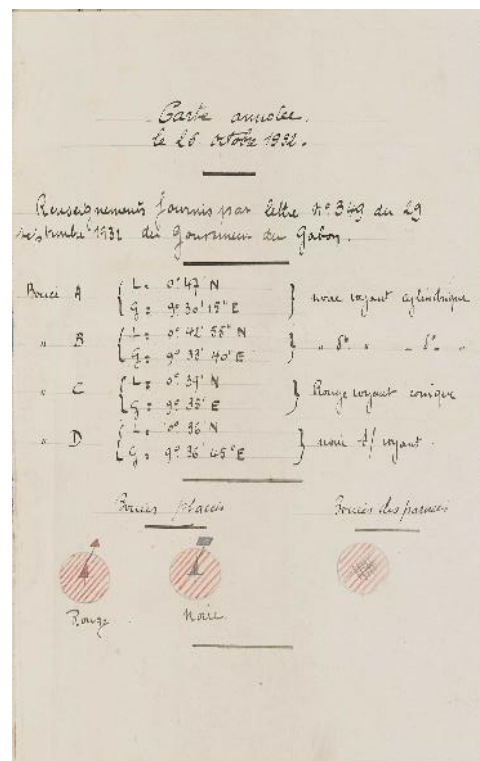 Carte annotée.
le 26 octobre 1932.
Renseignements fournis par lettre N° 349 du 29
septembre 1932 du Gouverneur du Gabon.
Bouée A { L = 0° 47' N } noire voyant cylindrique
G = 9° 30' 15" E
" B { L = 0° 42' 55" N } " d° " - d° "
G = 9° 33' 40" E
" C { L = 0° 39' N } Rouge voyant conique
G = 9° 35' E
" D { L = 0° 36' N } noire s/ voyant.
G = 9° 36' 45" E
Bouées placées Bouées disparues
Rouge. Noire.